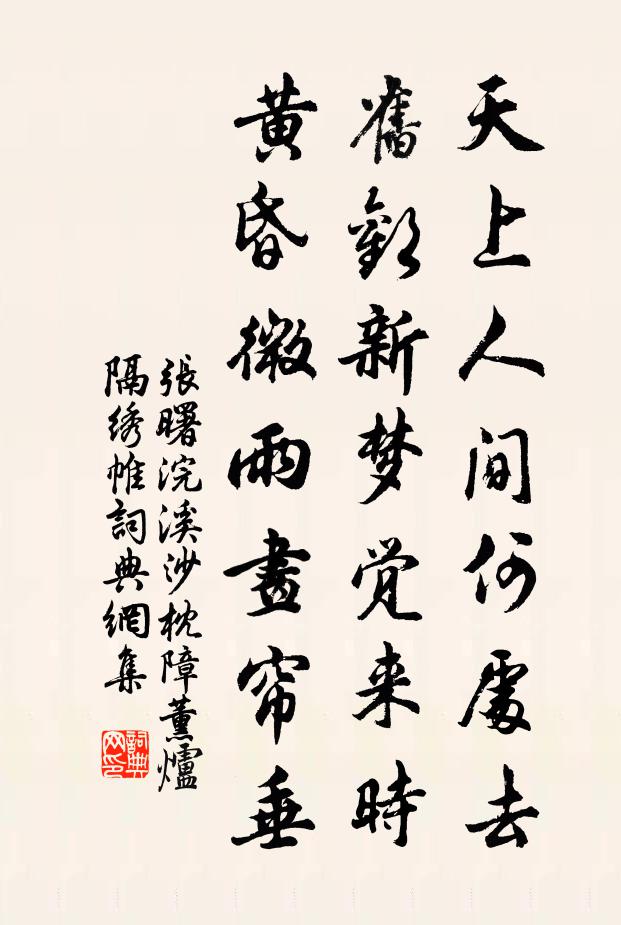 天上人间何處去
舊歡新梦觉来時
黄昏微雨畫帘垂
張曙浣溪沙枕障薰爐
隔绣帷詞典網集
詞典网印